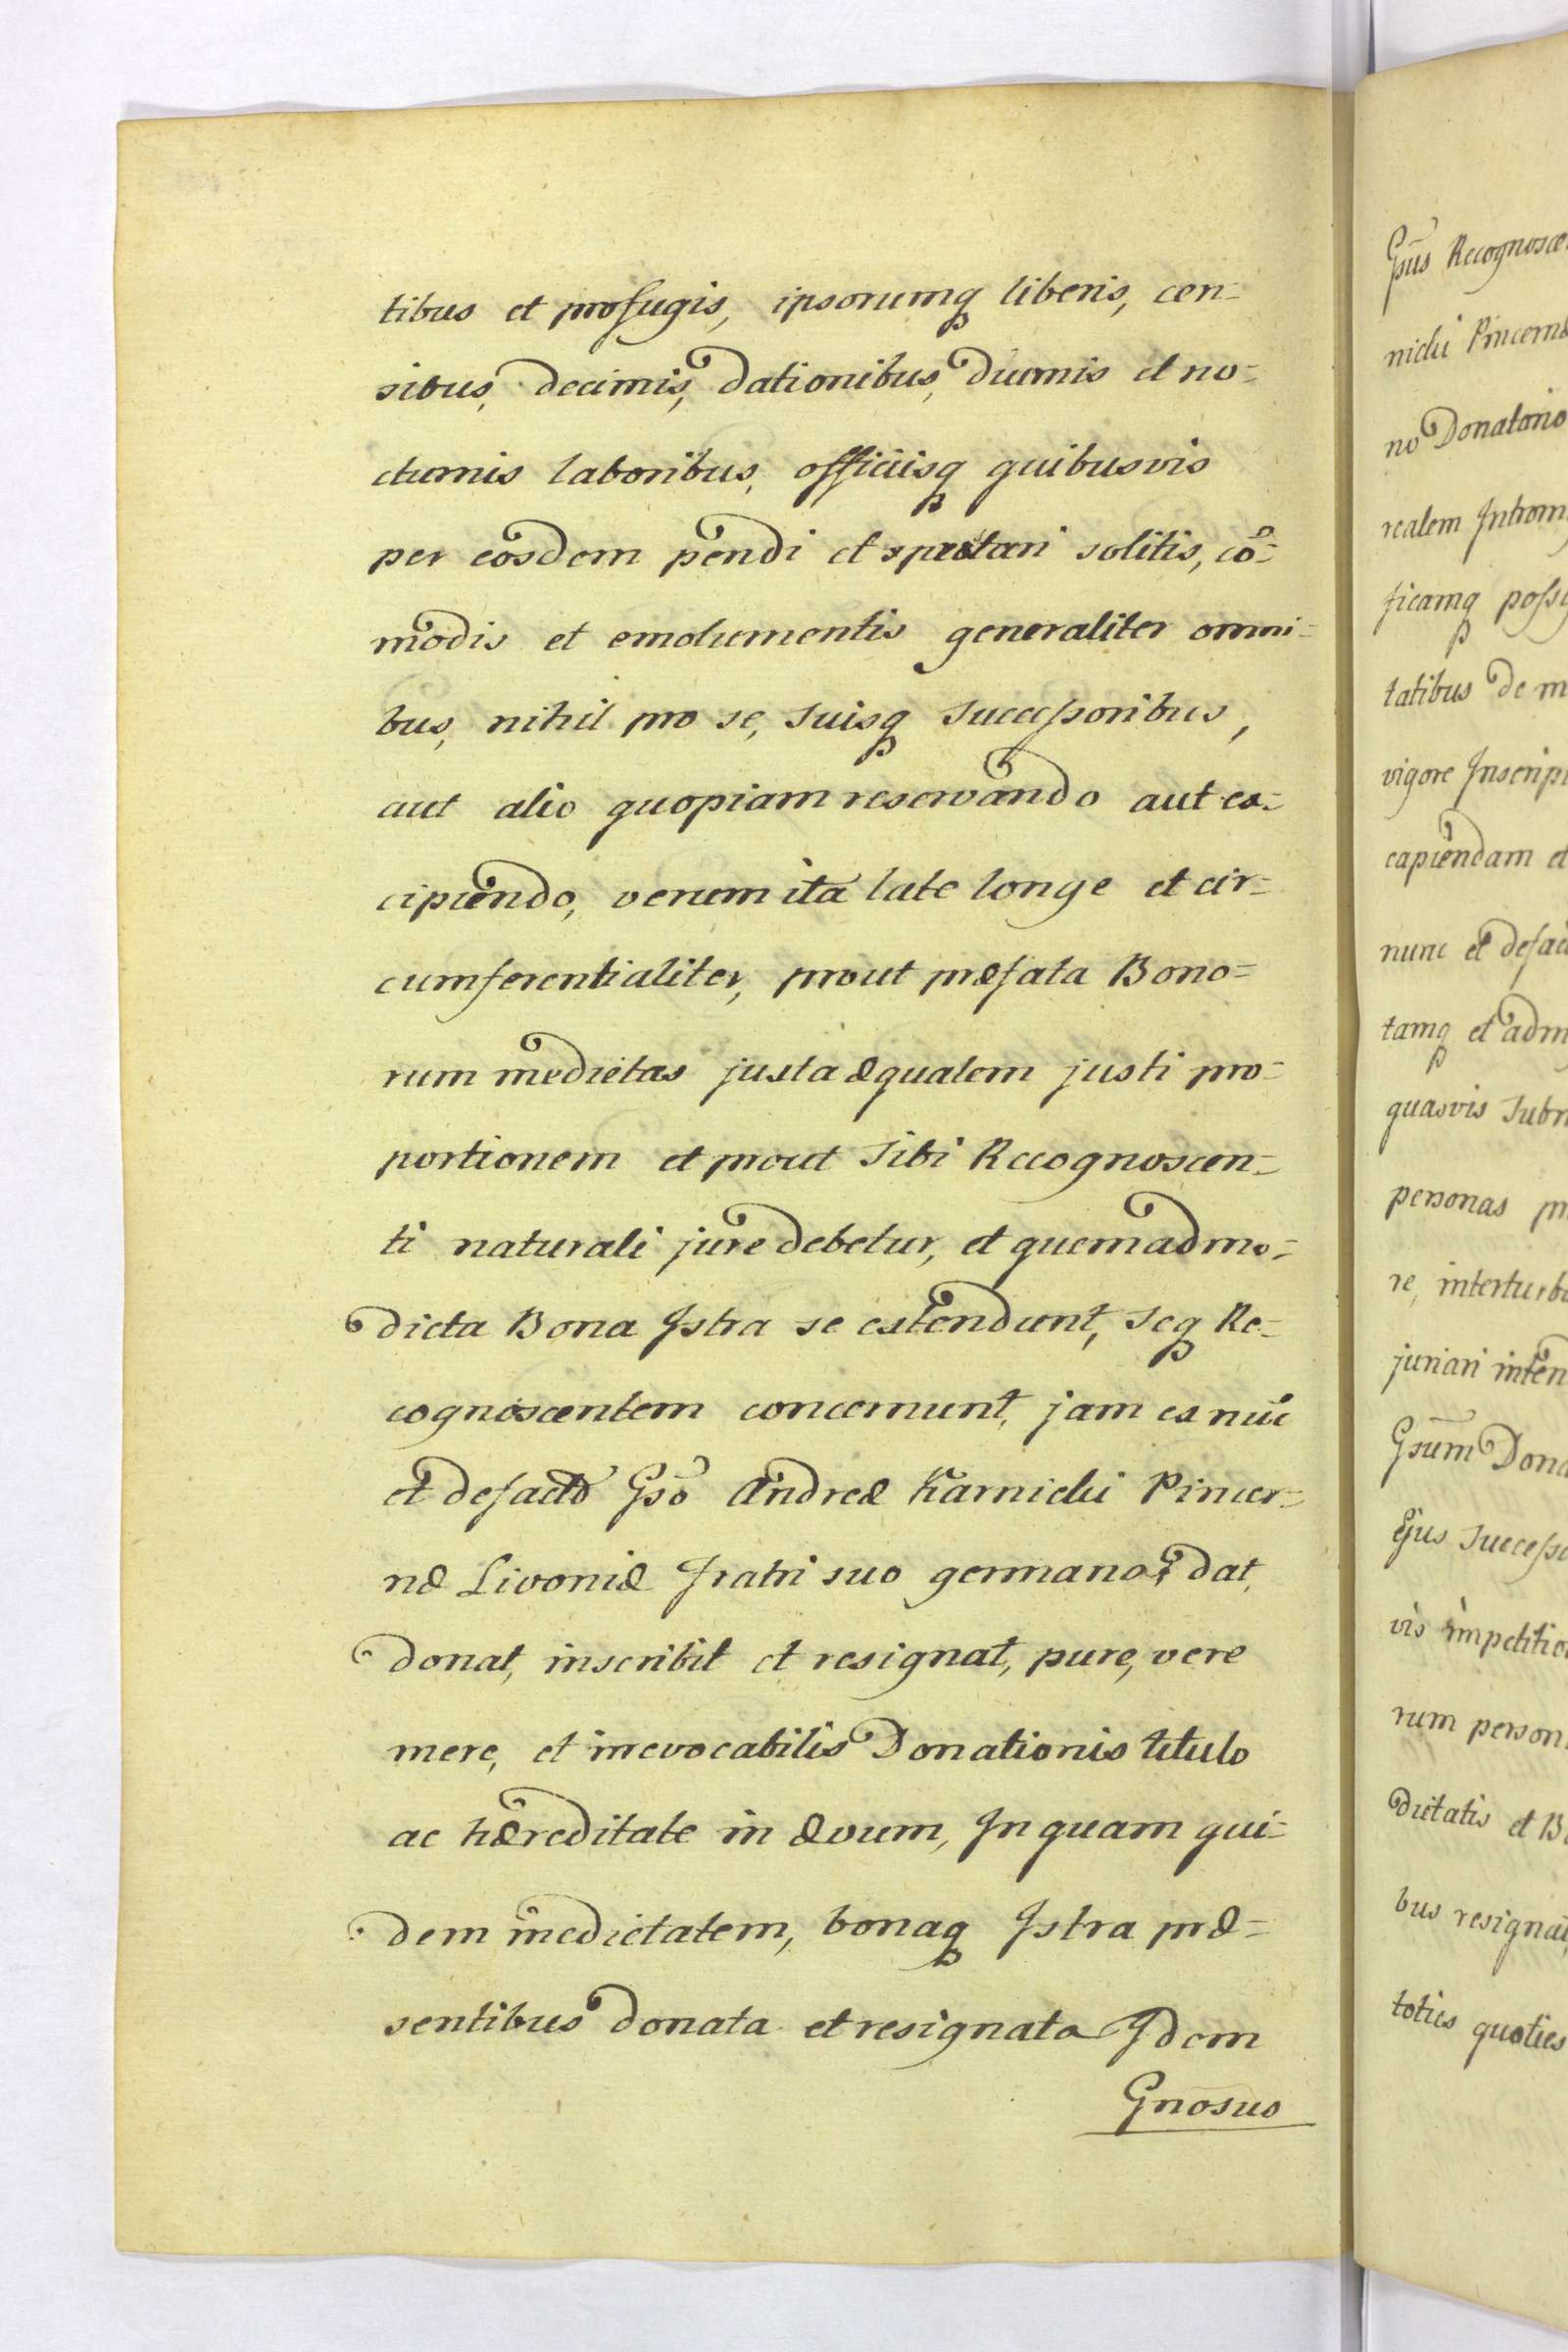 tibus et profugis, ipsorumq liberis, cen=
sibus, decimis, dationibus, diurnis et no=
cturnis laboribus, officiisq quibusvis
per eosdem pendi et spectari solitis, cō=
modis et emolumentis generaliter omni=
bus, nihil pro se, suisq successoribus,
aut alio quopiam reservando aut ex=
cipiendo, verum ita late longe et cir=
cumferentialiter, prout præfata Bono=
rum medietas justa æqualem justi pro=
portionem et prout sibi Recognoscen=
ti naturali jure debetur, et quemadmo=
dicta Bona Jstra se extendunt, seq Re=
cognoscentem concernunt, jam ex nūc
et de facto Gsō Andreæ Karnicki Pincer=
næ Livoniæ Fratri suo germano, dat,
donat, inscribit et resignat, pure, vere
mere, et irrevocabilis Donationis titulo
ac hæreditate in ævum, Jn quam qui=
dem medietatem, bonaq Jstra præ=
sentibus donata et resignata Jdem
Gnōsus
Gsūs Recognosce
nicki Pincernæ
no Donatario
realem Jntrom
ficamq poss
tatibus de m
vigore Jnscrip
capiendam et
nunc et defac
tamq et adm
quasvis subm
personas p
re, interturb
juriari inten
Gsūm Dona
Ejus success
vis impetitio
rum person
dictatis et B
bus resignat
toties quoties